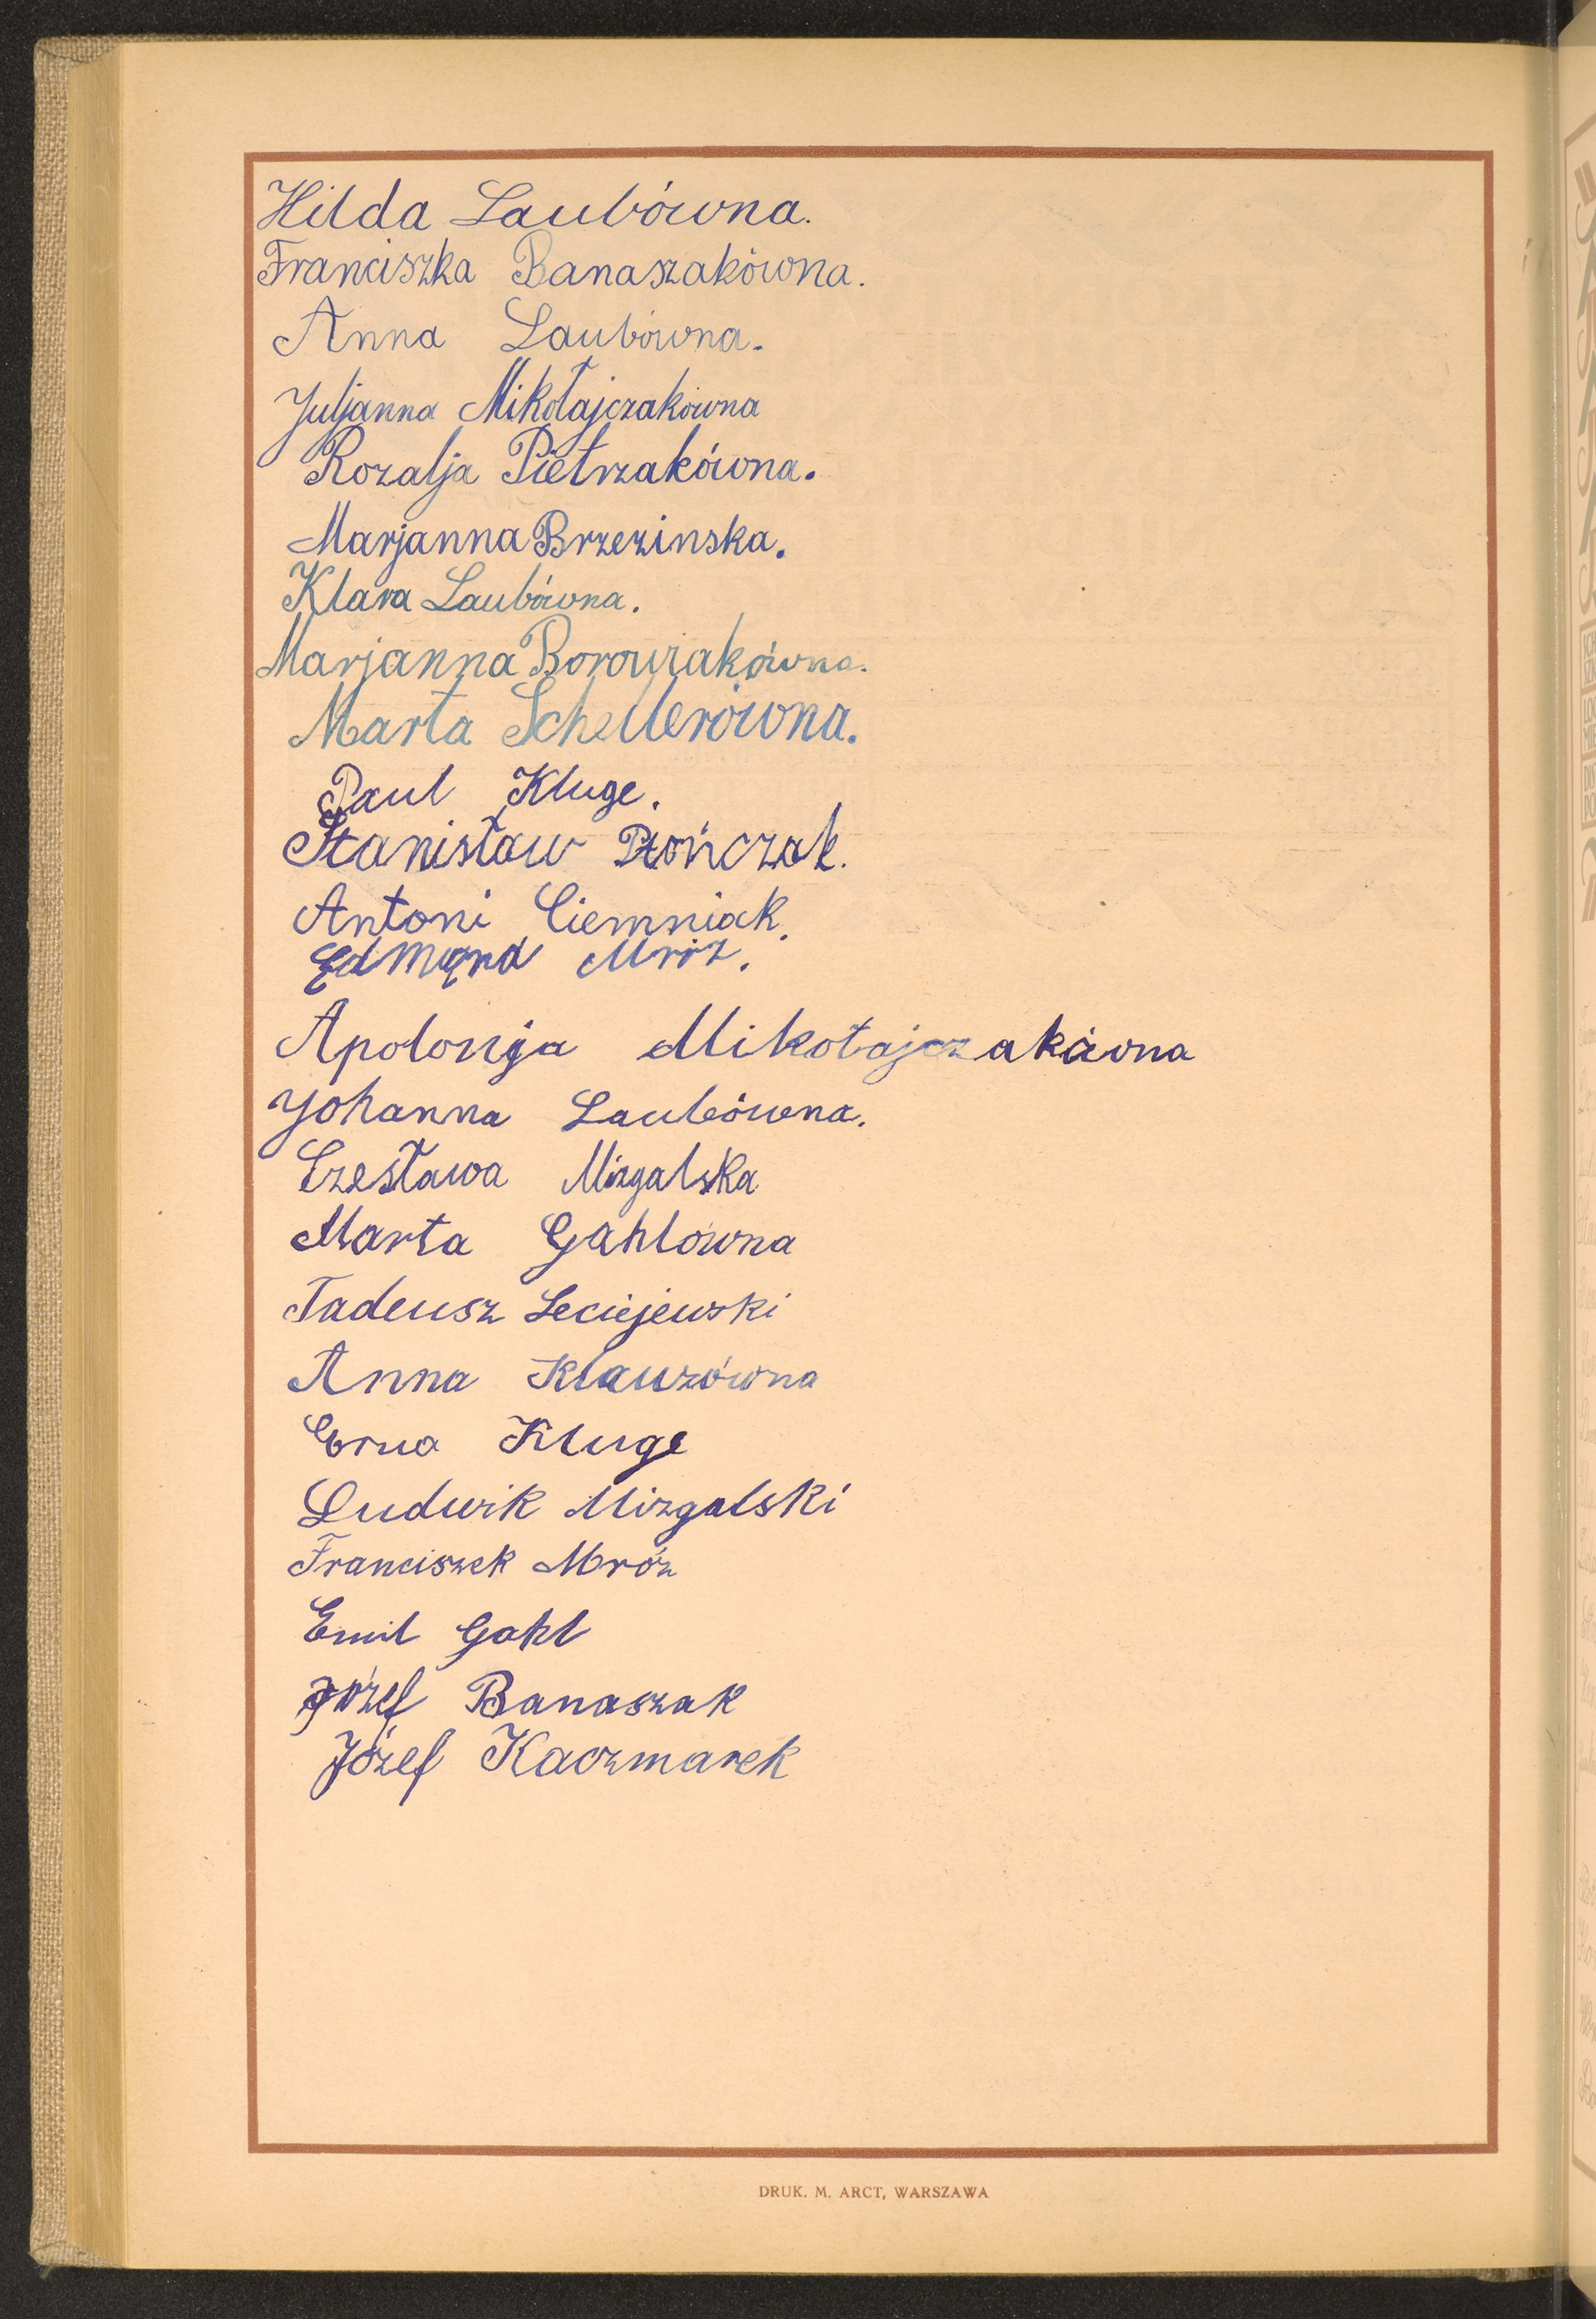 Hilda Laubówna.
Franciszka Banaszakówna.
Anna Laubówna.
Juljanna Mikołajczakówna
Rozalja Pietrzakówna.
Marjanna Brzezinska.
Klara Laubówna.
Marjanna Borowiakówna.
Marta Schellerówna.
Paul Kluge.
Stanisław Płończak.
Antoni Ciemniak.
Edmund Mróz.
Apolonja Mikołajczakówna
Johanna Laubówna.
Czesława Mizgalska
Marta Gahlówna
Tadeusz Leciejewski
Anna Klauzówna
Erna Kluge
Ludwik Mizgalski
Franciszek Mróz
Emil Gahl
Józef Banaszak
Józef Kaczmarek
DRUK. M. ARCT, WARSZAWA